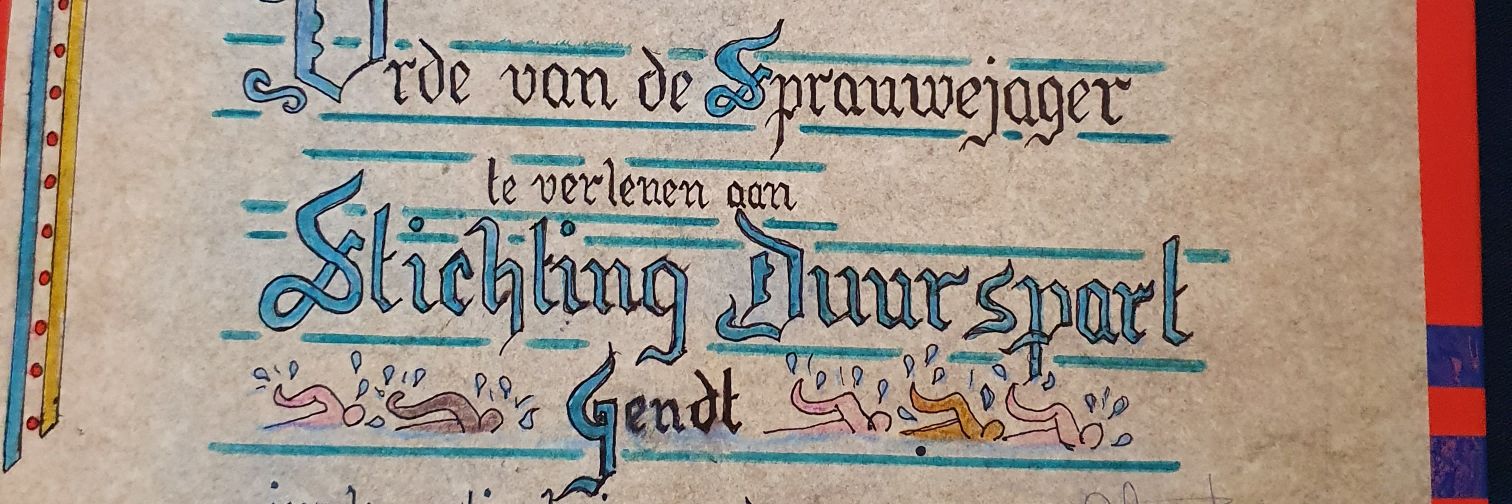 Orde van de Sprauwejager
te verlenen aan
Stichting Duursport
Gendt